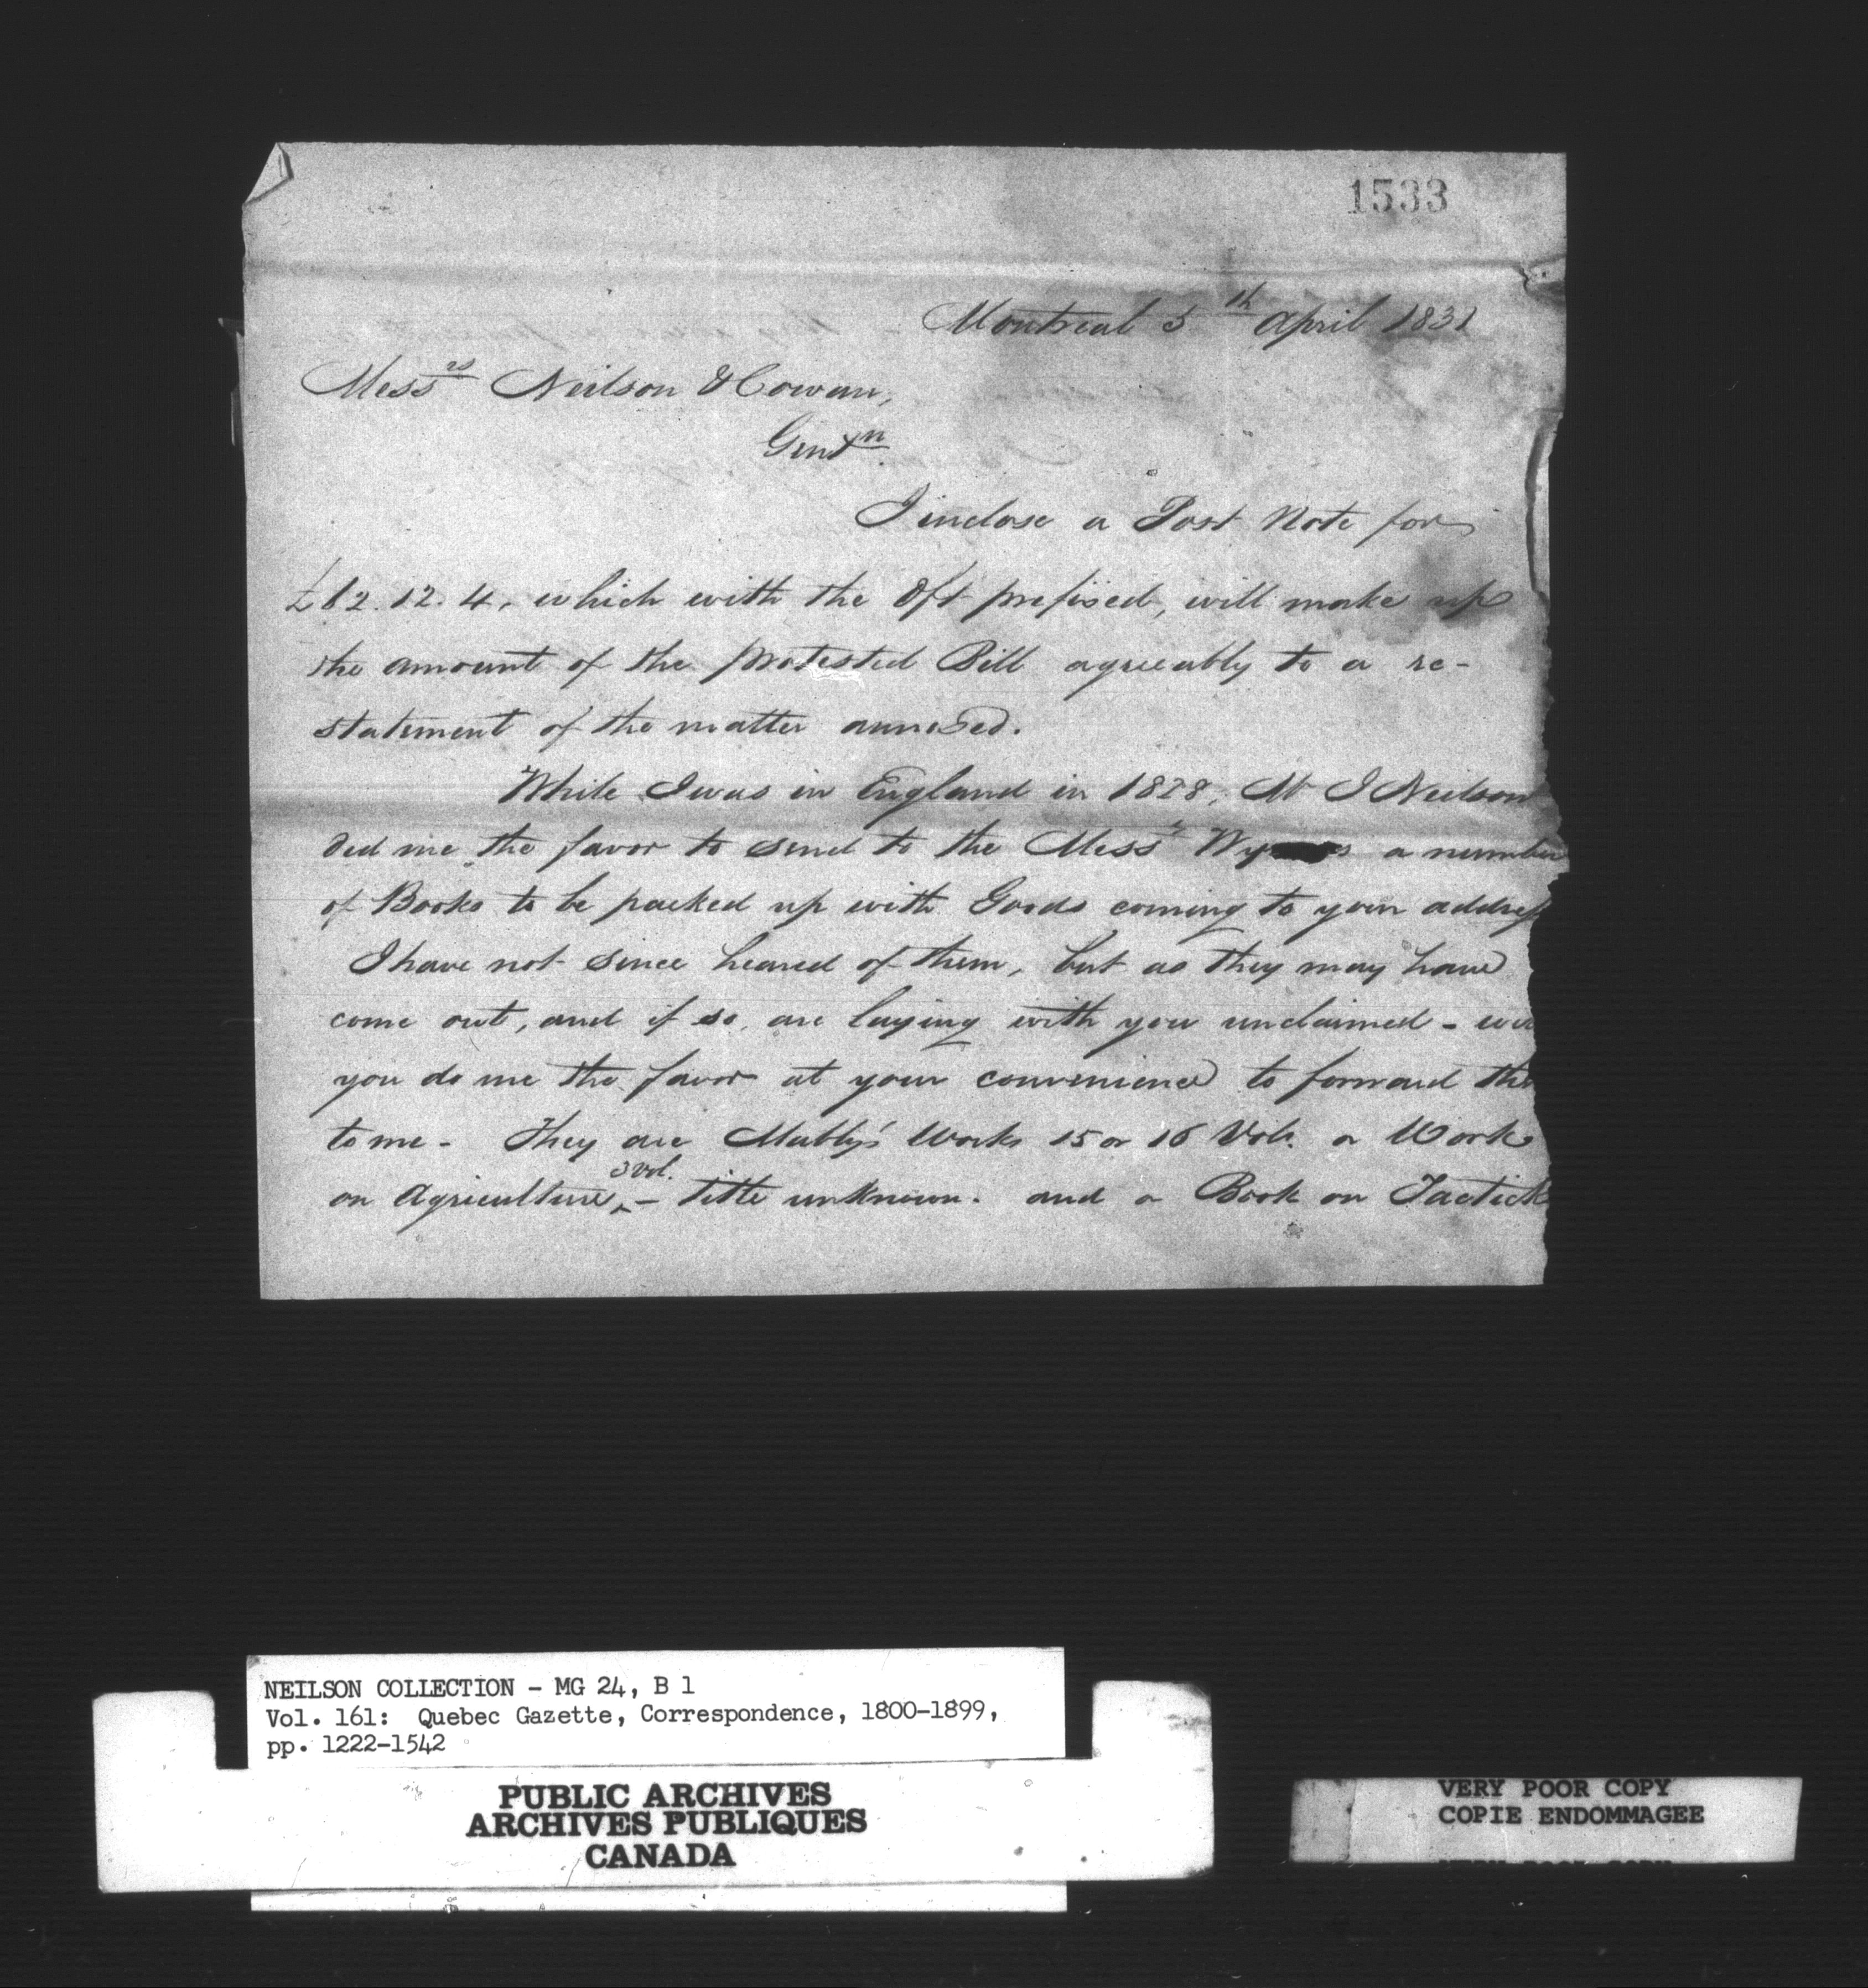 1533
Montreal 5th April 1831
Messrs Neilson & Cowan,
Gentn
I inclose a Post Note for
12. 4, which with the Dft prefixed, will make up
the amount of the protested Bill agreeably to a re-
statement of the matter annexed.
While I was in England in 1828, Mr J Neilson
did me the favor to send to the Messrs a number
of Books to be packed up with Goods coming to your address
I have not since heard of them, but as they may have
come out, and if so, are laying with you unclaimed - wi
you do me the favor at your convenience to forward the
to me - They are Mably's Works 15 or 16 Vols. a Work
on Agriculture, 3 vol. - title unknown. and a Book on Tactick
NEILSON COLLECTION - MG 24, B 1
Vol. 161: Quebec Gazette, Correspondence, 1800-1899,
pp. 1222-1542
PUBLIC ARCHIVES
ARCHIVES PUBLIQUES
CANADA
VERY POOR COPY
COPIE ENDOMMAGEE